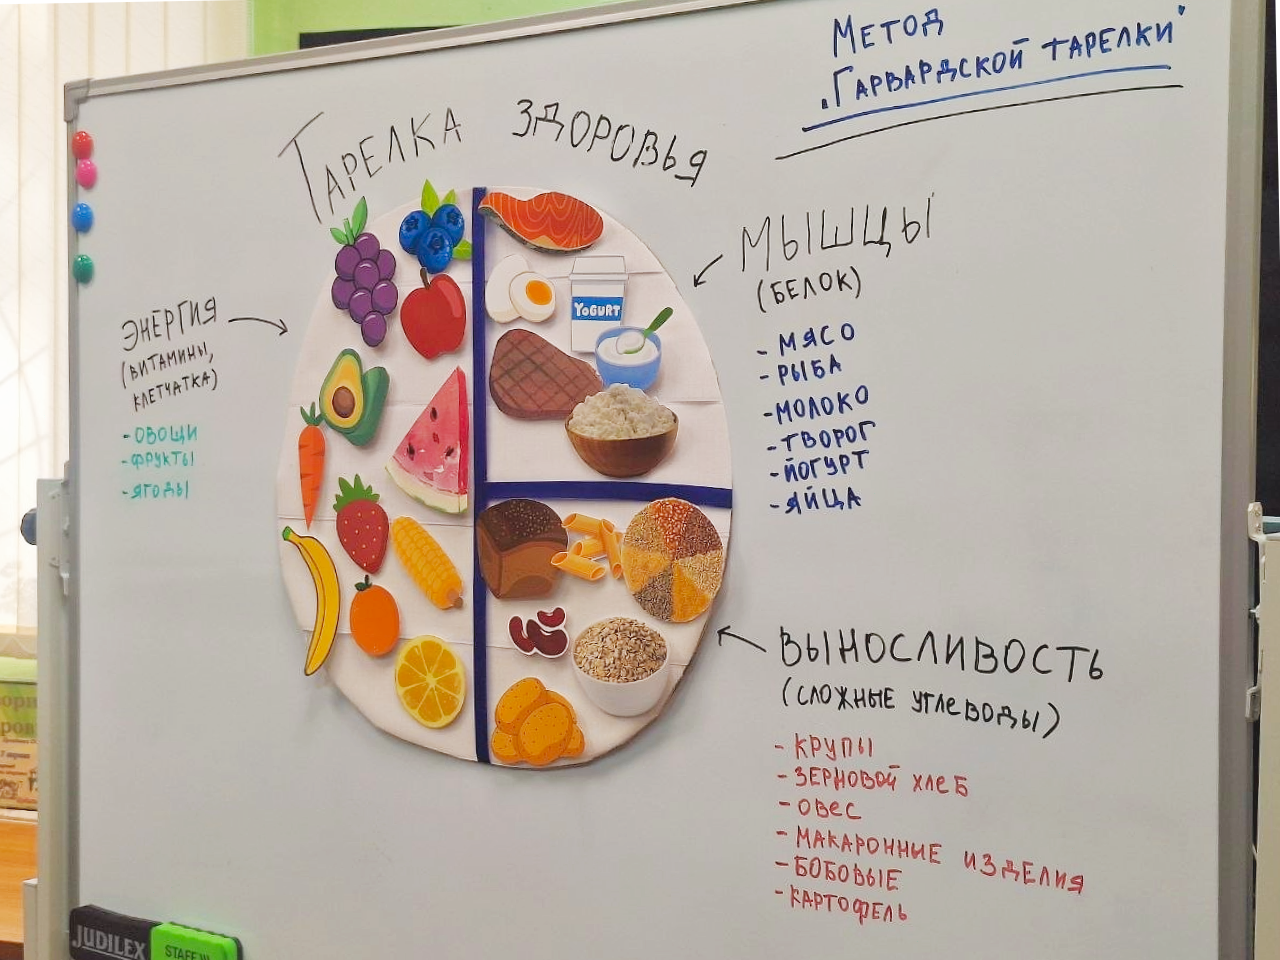 Метод
"Гарвардской тарелки"
Тарелка здоровья
Энергия
(витамины,
клетчатка)
- овощи
- фрукты
- ягоды
YOGURT
Мышцы
(белок)
- мясо
- рыба
- молоко
- творог
- йогурт
- яйца
Выносливость
(сложные углеводы)
- крупы
- зерновой хлеб
- овес
- макаронные изделия
- бобовые
- картофель
JUDILEX